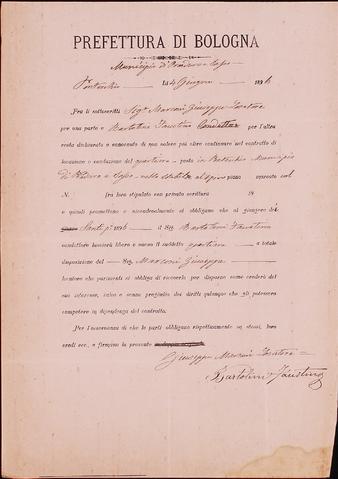 PREFETTURA DI BOLOGNA
Municipio di Praduro e Sasso
Pontecchio Lì 4 Giugno 1896
Fra li sottoscritti Sig. Marconi Giuseppe Locatore
per una parte e Bartolini Faustino Conduttore per l'altra
resta dichiarato e convenuto di non volere più oltre continuare nel contratto di
locazione e conduzione del quartiere posto in Pontecchio Municipio
di Praduro e Sasso piano
N. fra loro stipulato con privata scrittura 18
e quindi promettono e vicendevolmente si obbligano che al giungere dei
Santi pi 1896 il Sig. Bartolini Faustino
conduttore lascierà libero e vacuo il suddetto quartiere a totale
disposizione del Sig. Marconi Giuseppe
locatore che parimenti si obbliga di riceverlo per disporne come crederà del
suo interesse, salvo e senza pregiudizio dei diritti qualunque che gli potessero
competere in dipendenza del contratto.
Per l'osservanza di che le parti obbligano rispettivamente se stessi, loro
eredi ecc., e firmano la presente
Giuseppe Marconi Locatore
Bartolini Faustino